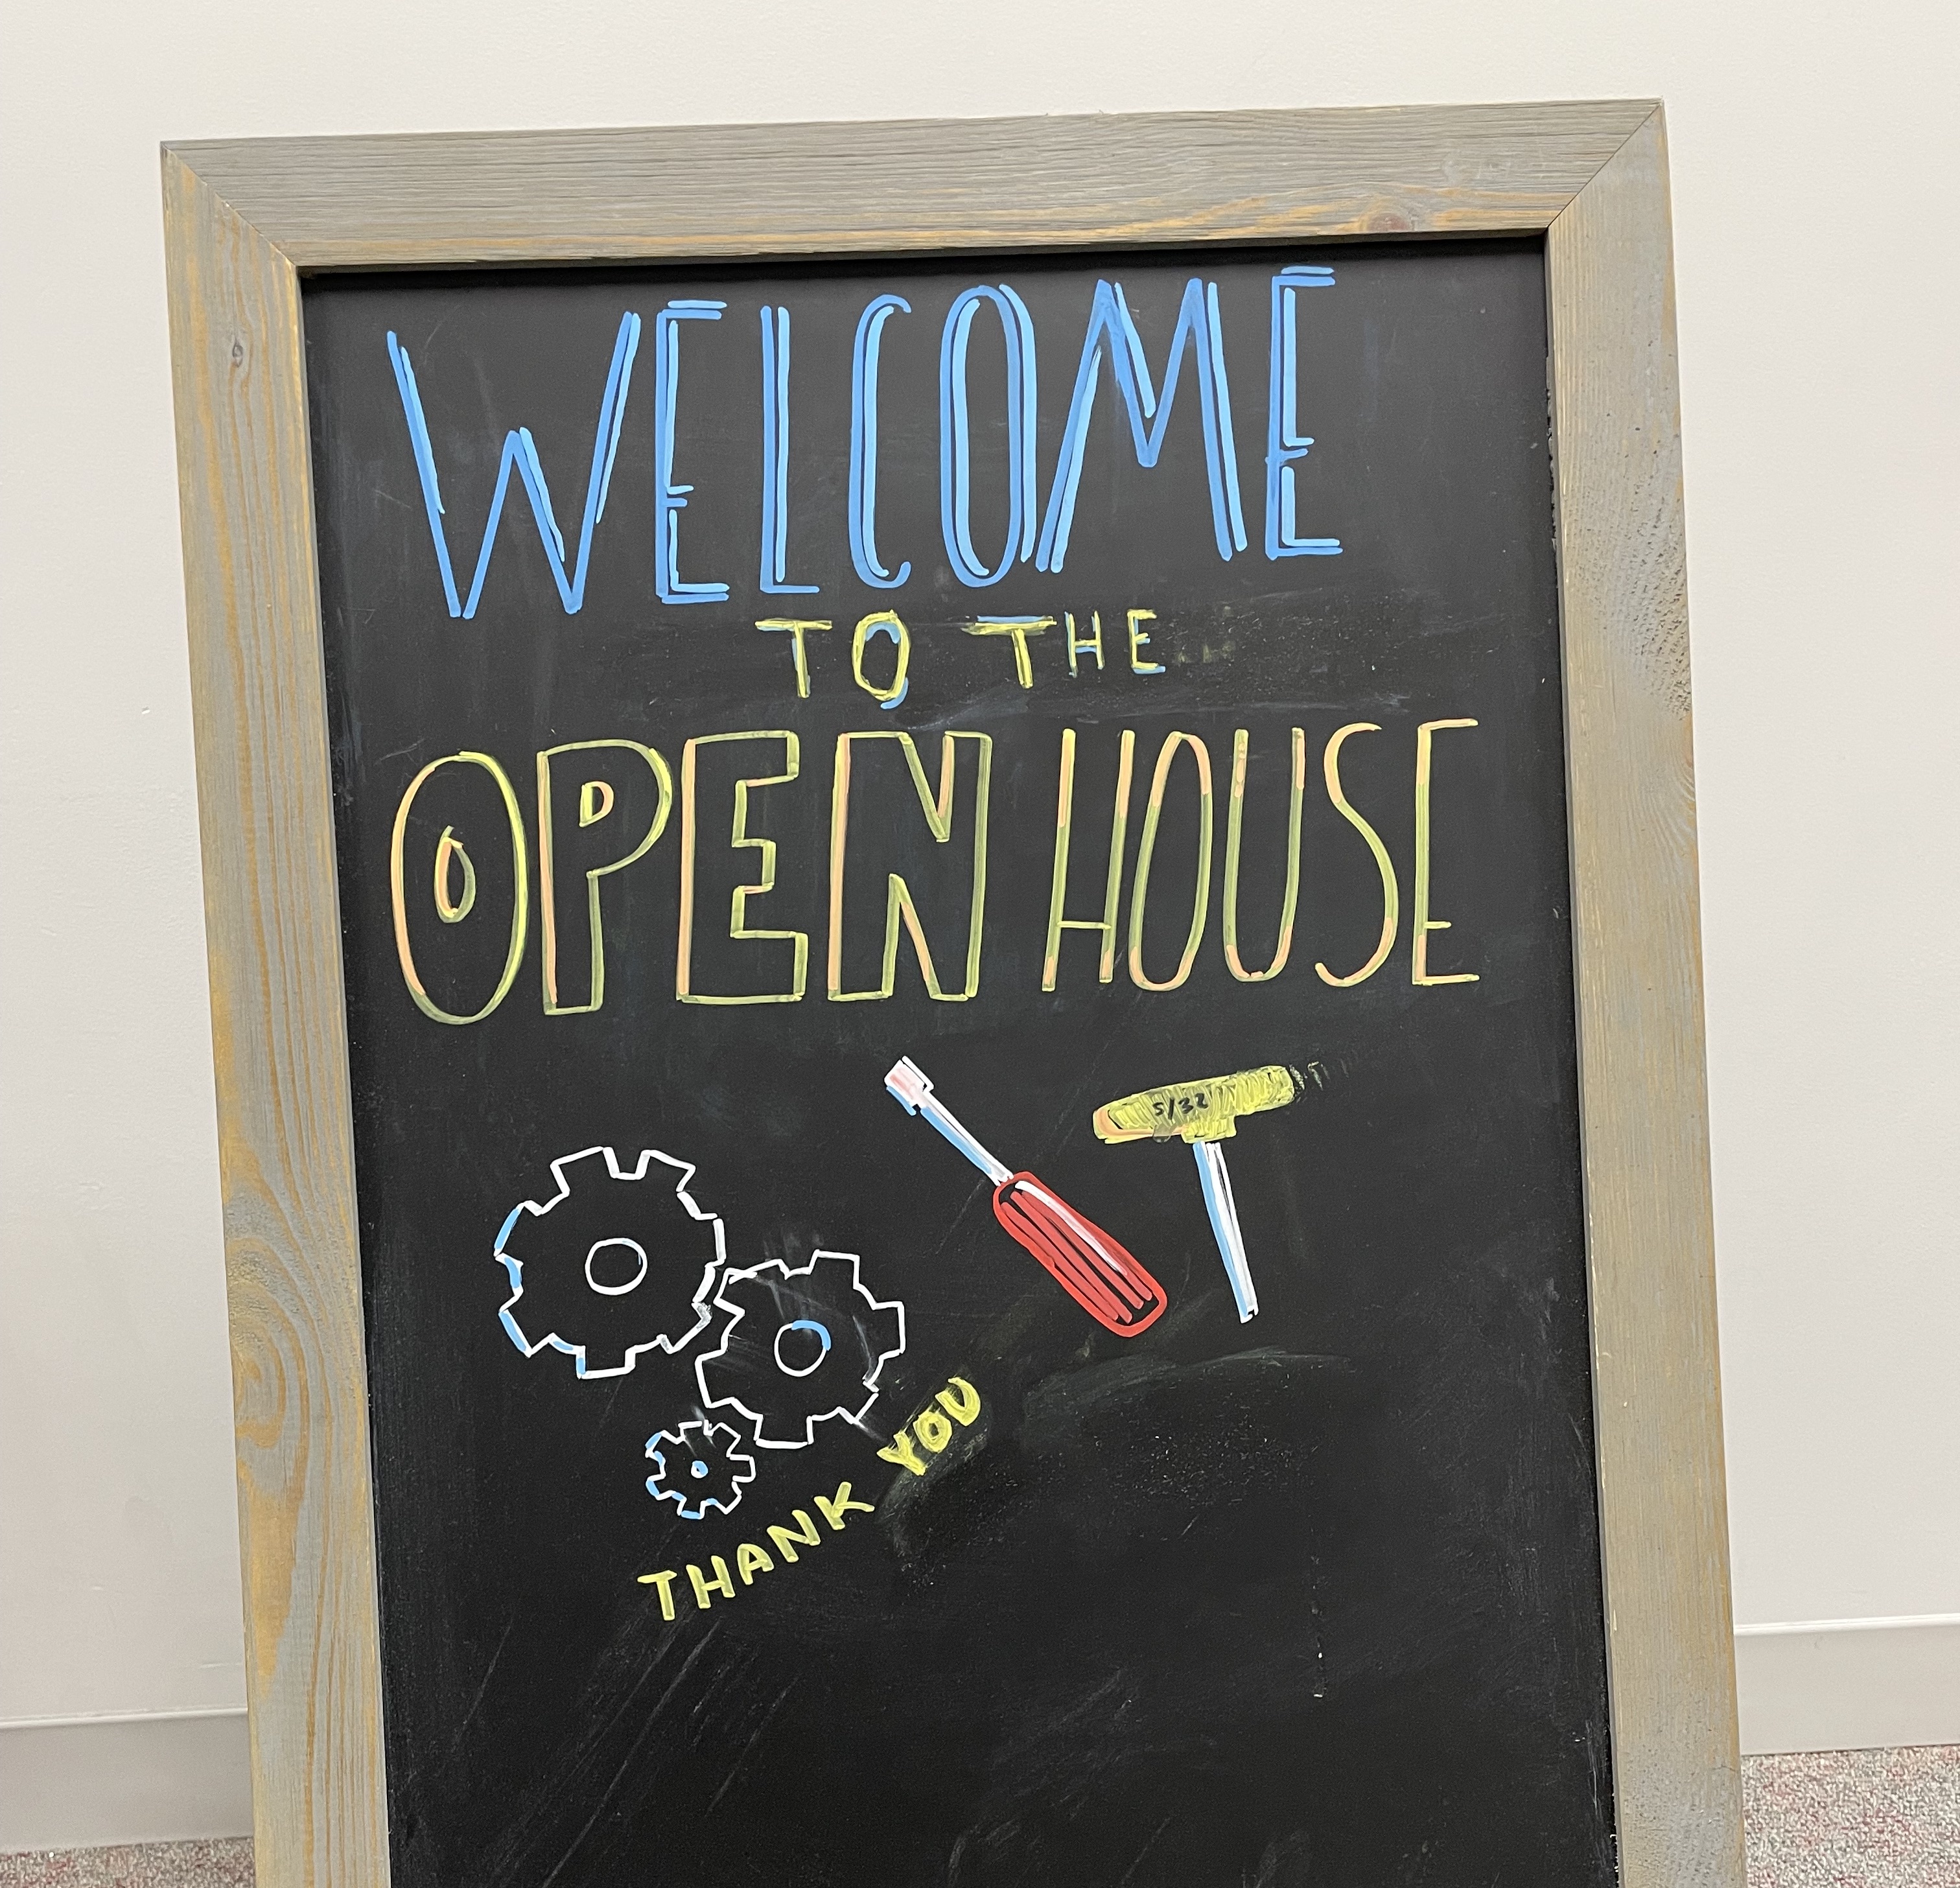 WELCOME
TO THE
OPEN HOUSE
5/32
THANK YOU